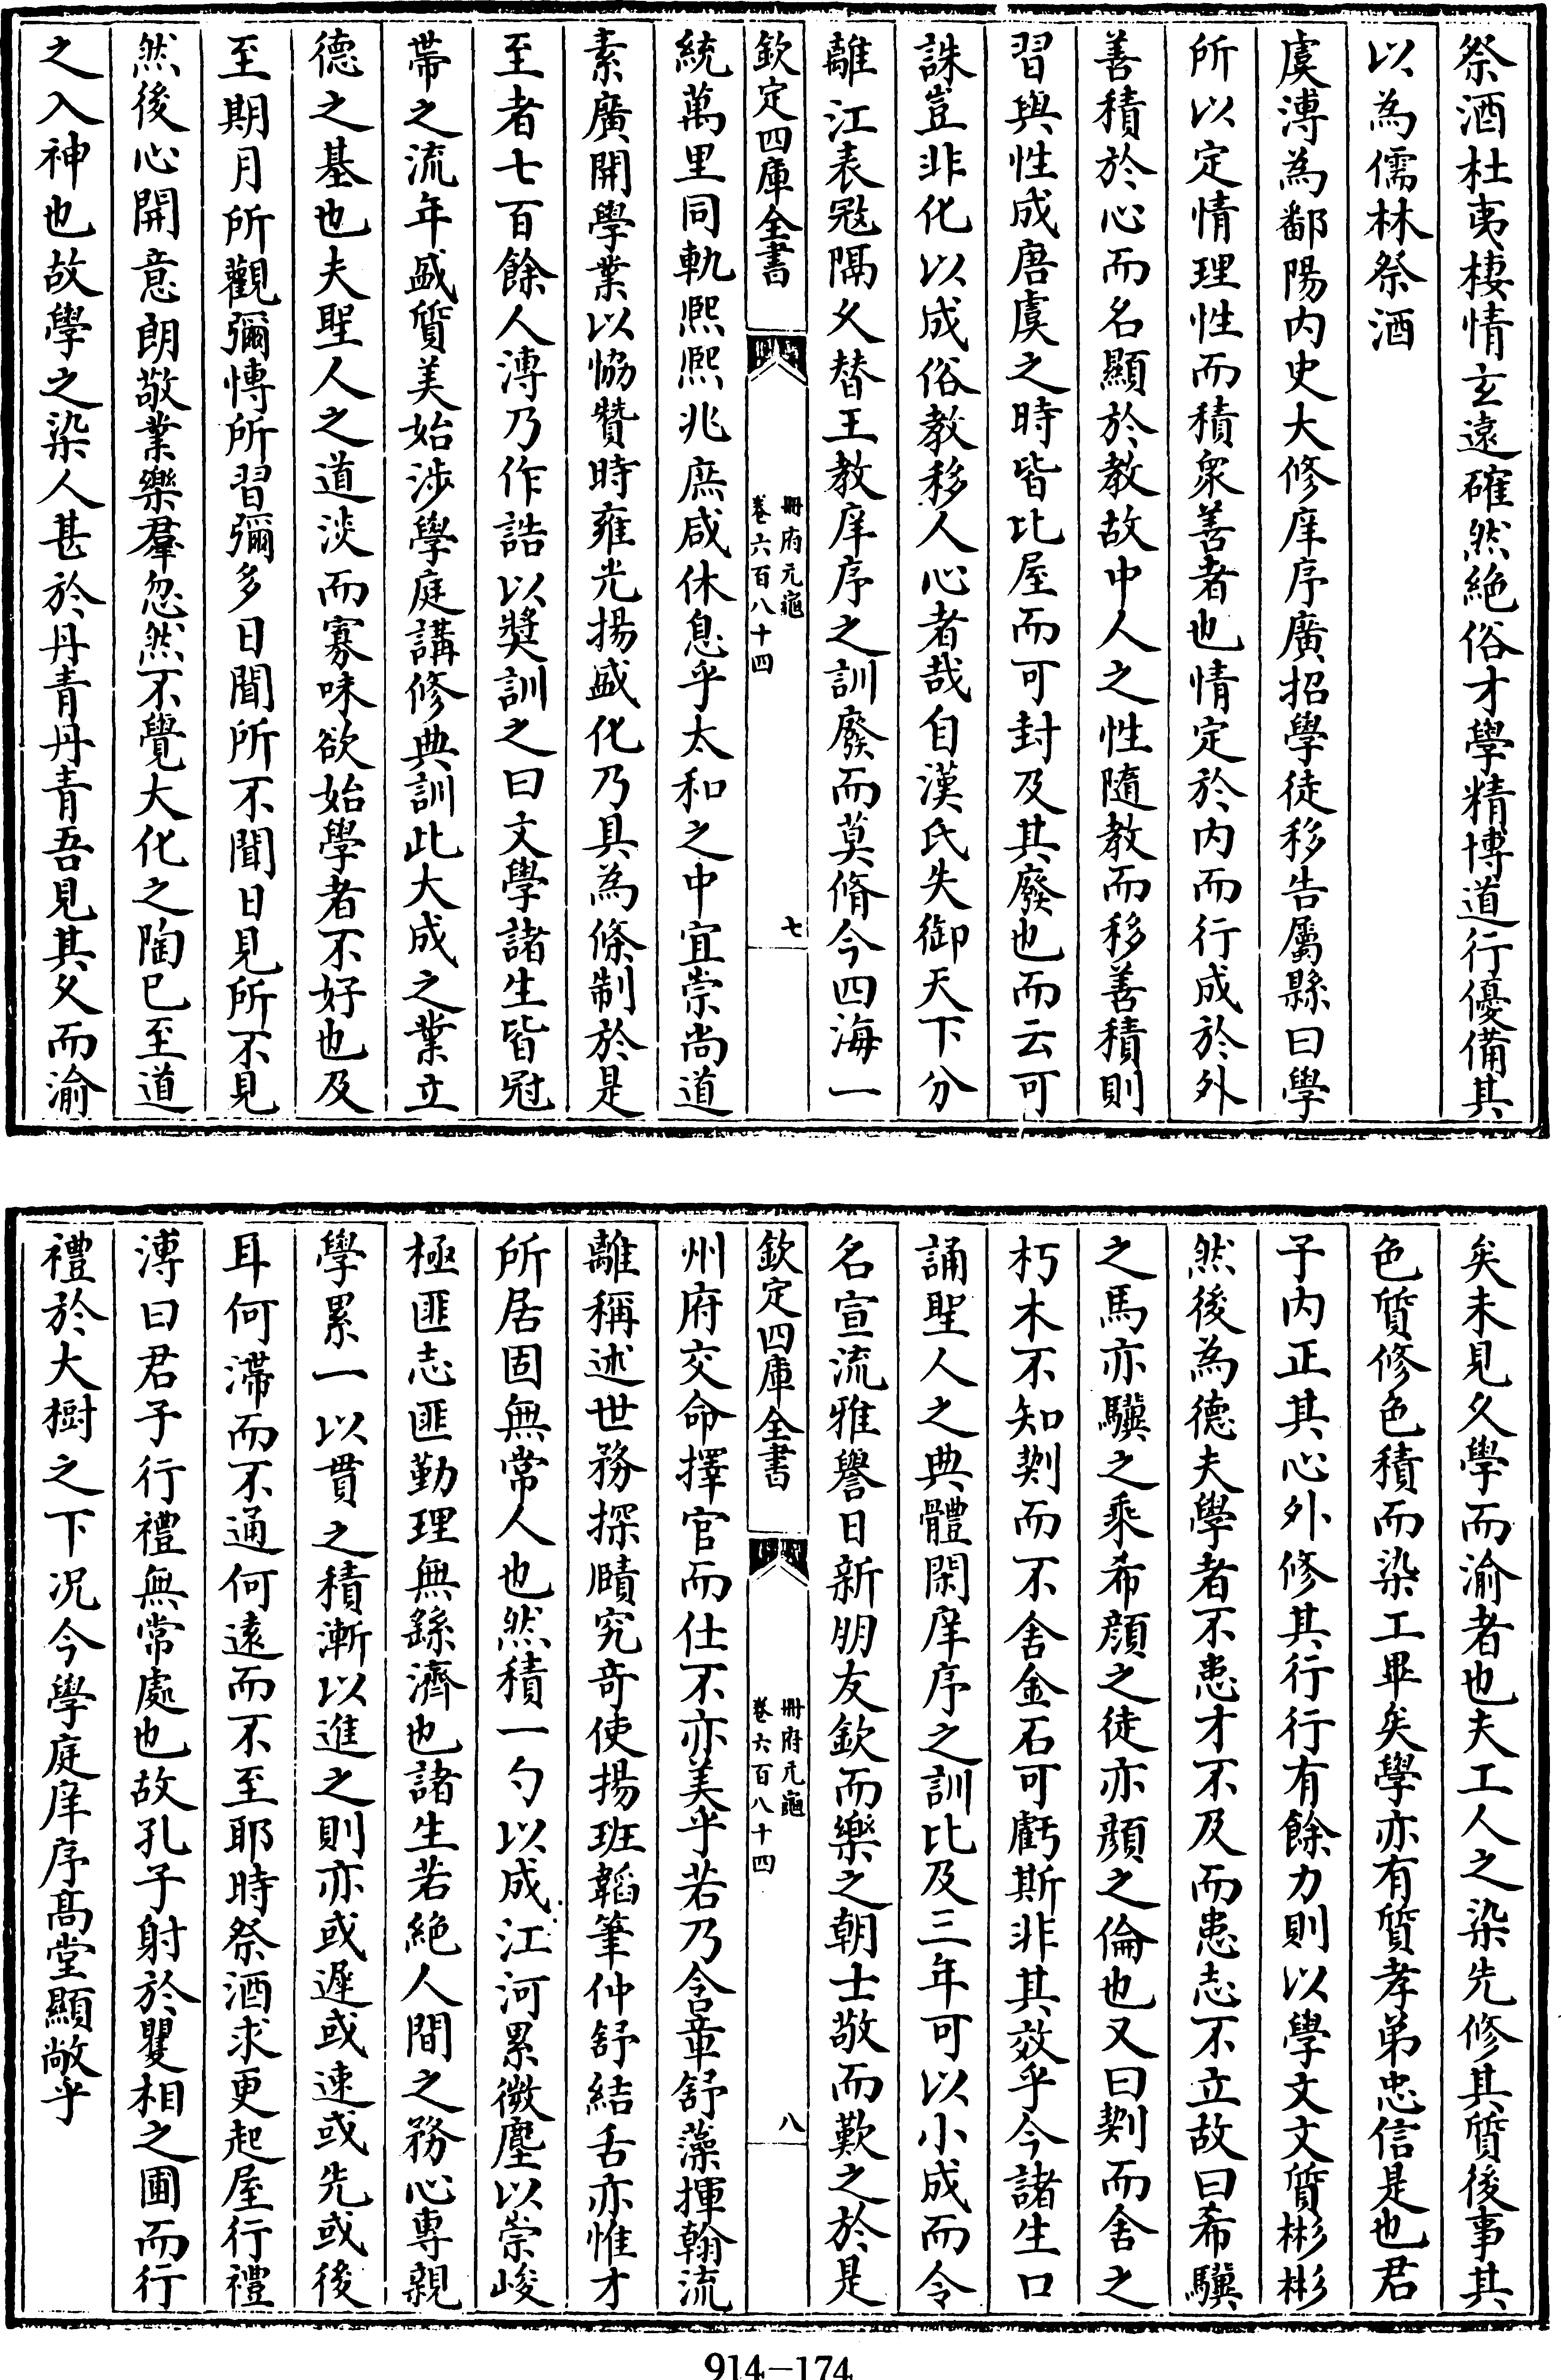 祭酒杜夷棲情玄遠確然絶俗才學精博道行優備其
以為儒林祭酒
虞溥為鄱陽内史大修庠序廣招學徒移告屬縣曰學
所以定情理性而積衆善者也情定於内而行成於外
善積於心而名顯於教故中人之性隨教而移善積則
習與性成唐虞之時皆比屋而可封及其廢也而云可
誅豈非化以成俗教移人心者哉自漢氏失御天下分
離江表㓂隔久替王教庠序之訓廢而莫脩今四海一
欽定四庫全書
冊府元龜
卷六百八十四
七
統萬里同軌熈熈兆庶咸休息乎太和之中宜崇尚道
素廣開學業以協贊時雍光揚盛化乃具為條制於是
至者七百餘人溥乃作誥以奬訓之曰文學諸生皆冠
帶之流年盛質美始涉學庭講修典訓此大成之業立
德之基也夫聖人之道淡而寡味欲始學者不好也及
至期月所觀彌慱所習彌多日聞所不聞日見所不見
然後心開意朗敬業樂羣忽然不覺大化之陶已至道
之入神也故學之染人甚於丹青丹青吾見其久而渝
矣未見久學而渝者也夫工人之染先修其質後事其
色質修色積而染工畢矣學亦有質孝弟忠信是也君
子内正其心外修其行行有餘力則以學文文質彬彬
然後為德夫學者不患才不及而患志不立故曰希驥
之馬亦驥之乘希顔之徒亦顔之倫也又曰剡而舍之
朽木不知剡而不舍金石可虧斯非其效乎今諸生口
誦聖人之典體閑庠序之訓比及三年可以小成而令
名宣流雅譽日新朋友欽而樂之朝士敬而歎之於是
欽定四庫全書
冊府元龜
卷六百八十四
八
州府交命擇官而仕不亦美乎若乃含章舒藻揮翰流
離稱述世務探賾究竒使揚班韜筆仲舒結舌亦惟才
所居固無常人也然積一勺以成江河累微塵以崇峻
極匪志匪勤理無繇濟也諸生若絶人間之務心專親
學累一以貫之積漸以進之則亦或遲或速或先或後
耳何滯而不通何遠而不至耶時祭酒求更起屋行禮
溥曰君子行禮無常處也故孔子射於矍相之圃而行
禮於大樹之下况今學庭庠序髙堂顯敞乎
914-174